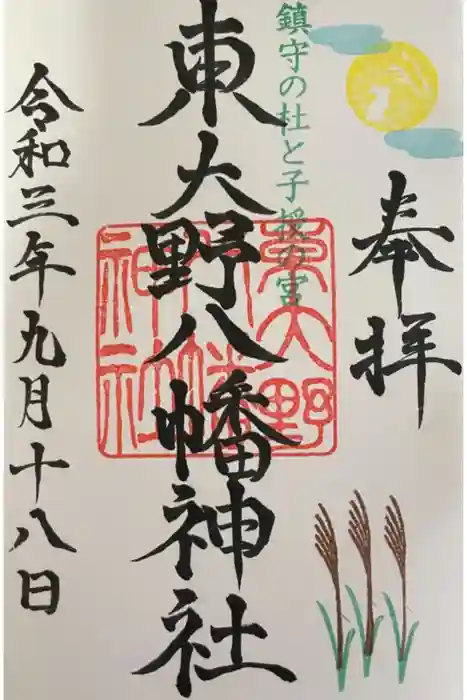 奉拝
鎮守の杜と子授の宮
東大野八幡神社
令和三年九月十八日
東大野
八幡
神社